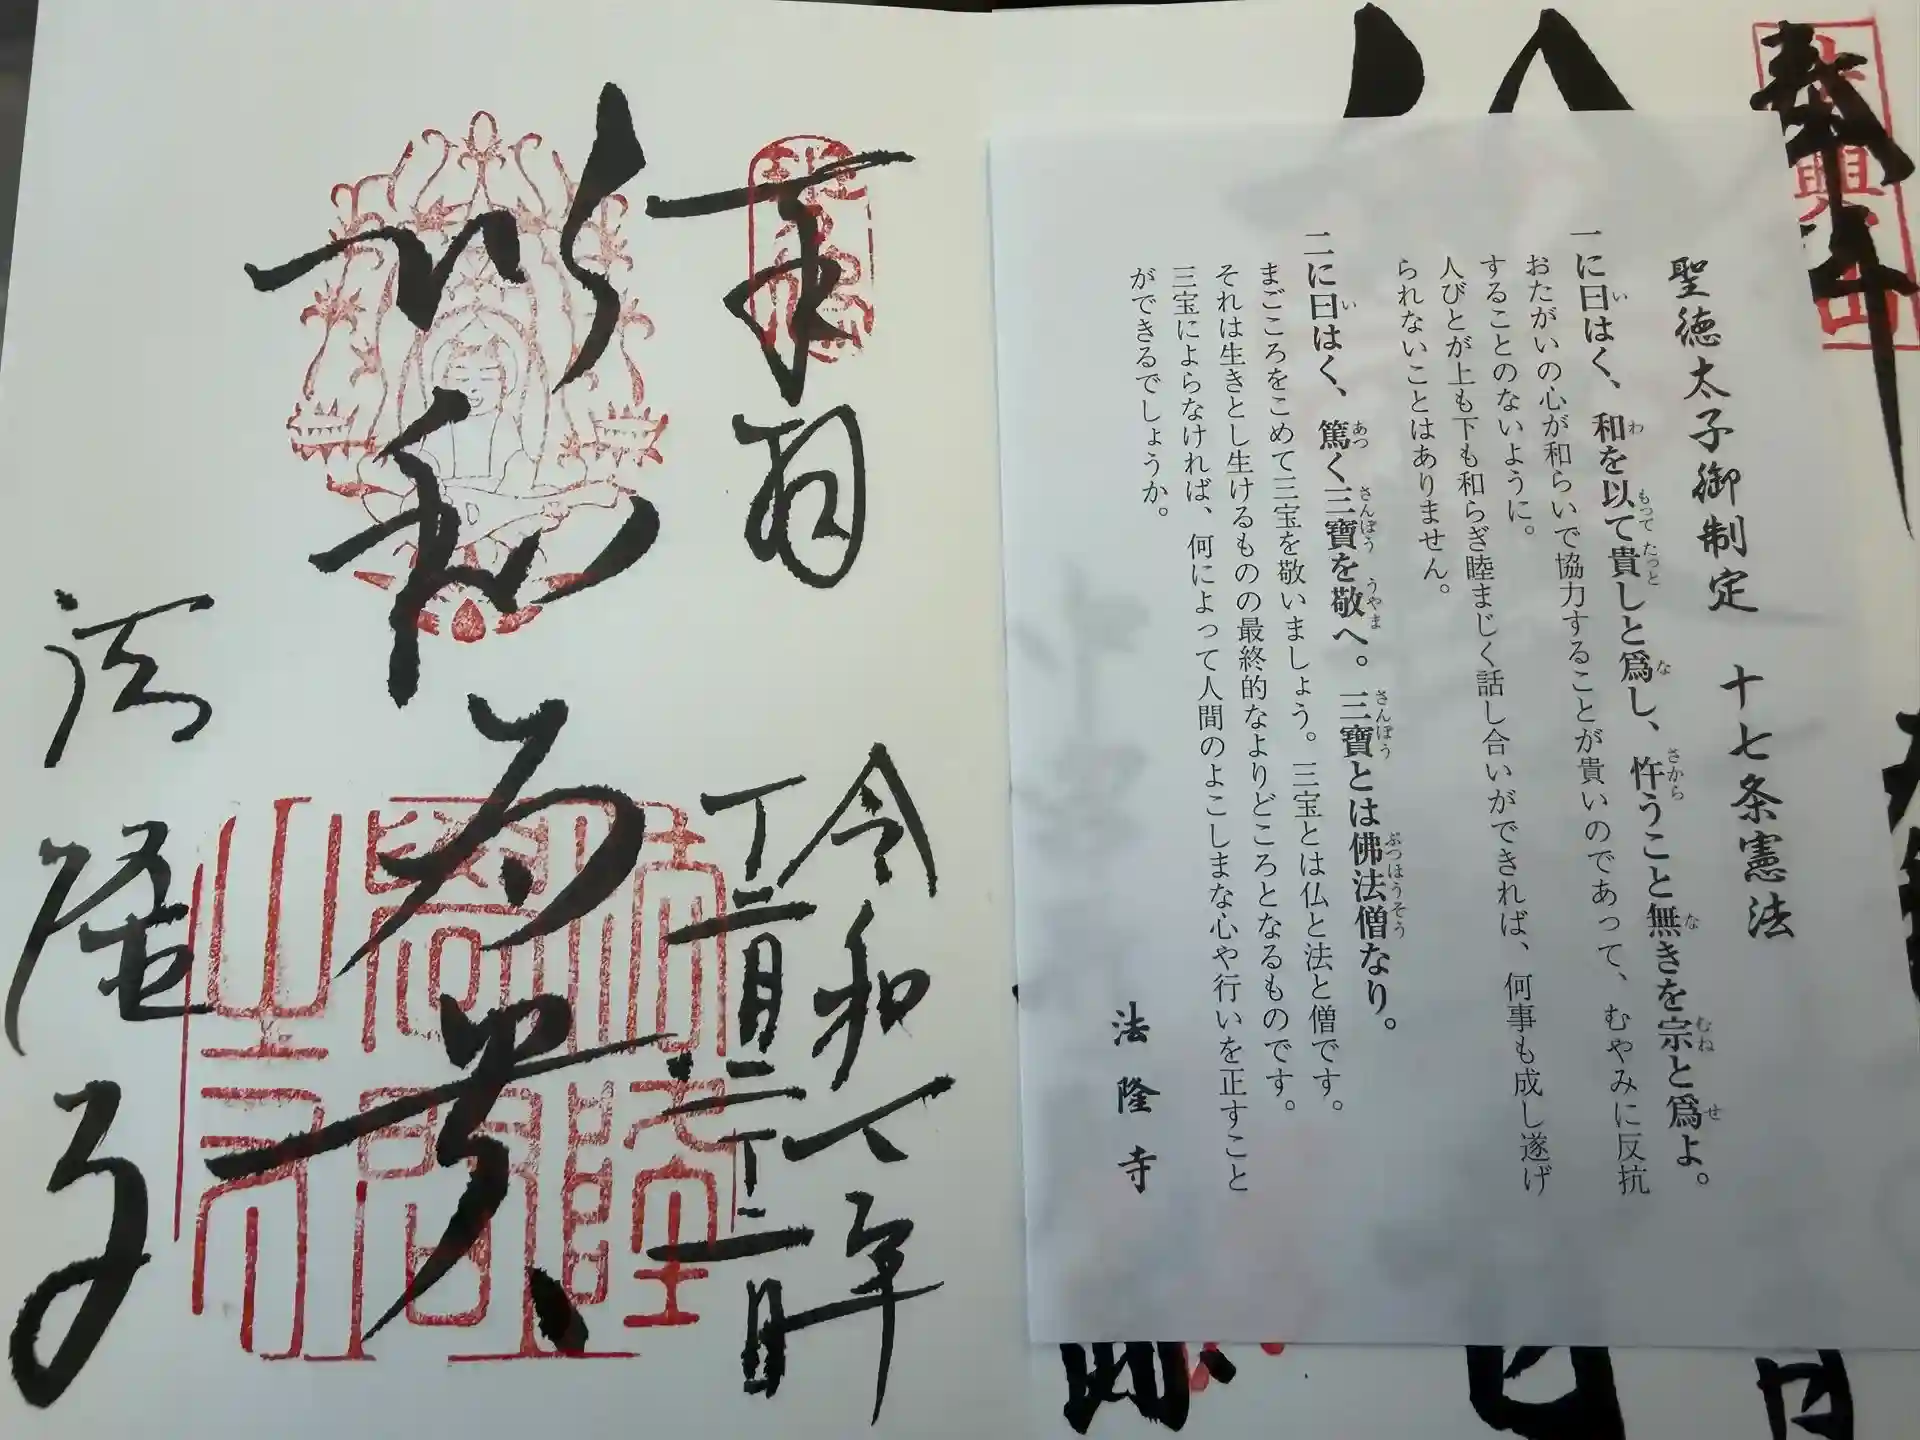 奉拝
聖徳太子御制定 十七条憲法
一に曰はく、和を以て貴しと爲し、忤うこと無きを宗と爲よ。
おたがいの心が和らいで協力することが貴いのであって、むやみに反抗
することのないように。
人びとが上も下も和らぎ睦まじく話し合いができれば、何事も成し遂げ
られないことはありません。
二に曰はく、篤く三寶を敬へ。三寶とは佛法僧なり。
まごころをこめて三宝を敬いましょう。三宝とは仏と法と僧です。
それは生きとし生けるものの最終的なよりどころとなるものです。
三宝によらなければ、何によって人間のよこしまな心や行いを正すこと
ができるでしょうか。
法隆寺
奉拝
令和六年
十二月二十二日
以和為貴
法隆寺